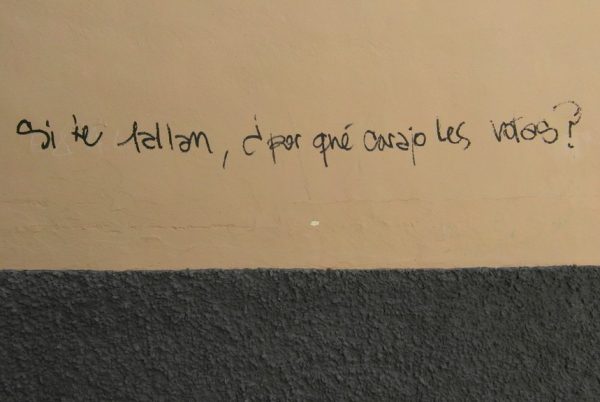 Si te fallan, ¿por qué carajo les votas?